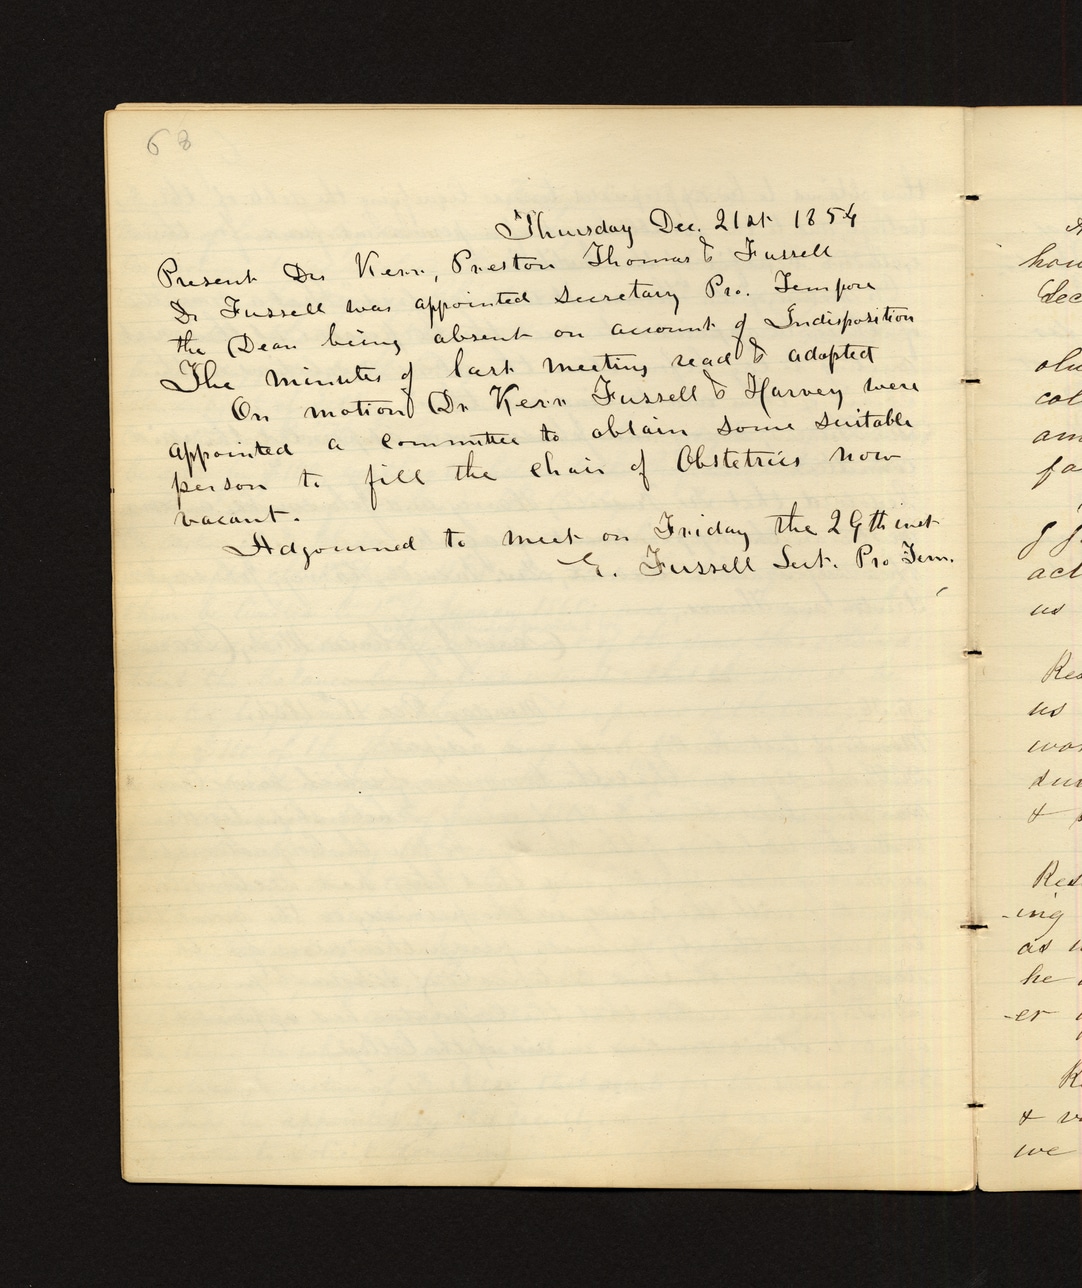 68
Thursday Dec. 21st 1854
Present Drs Kern, Preston Thomas & Fussell
Dr Fussell was appointed Secretary Pro. Tempore
the Dean being absent on account of Indisposition
The minutes of last meeting read & adopted
On motion Dr Kern Fussell & Harvey were
appointed a committee to obtain some suitable
person to fill the chair of Obstetrics now
vacant.
Adjourned to meet on Friday the 29th inst
E. Fussell Sect. Pro Tem.
us
us
&
-ing
as
he
-er
&
we